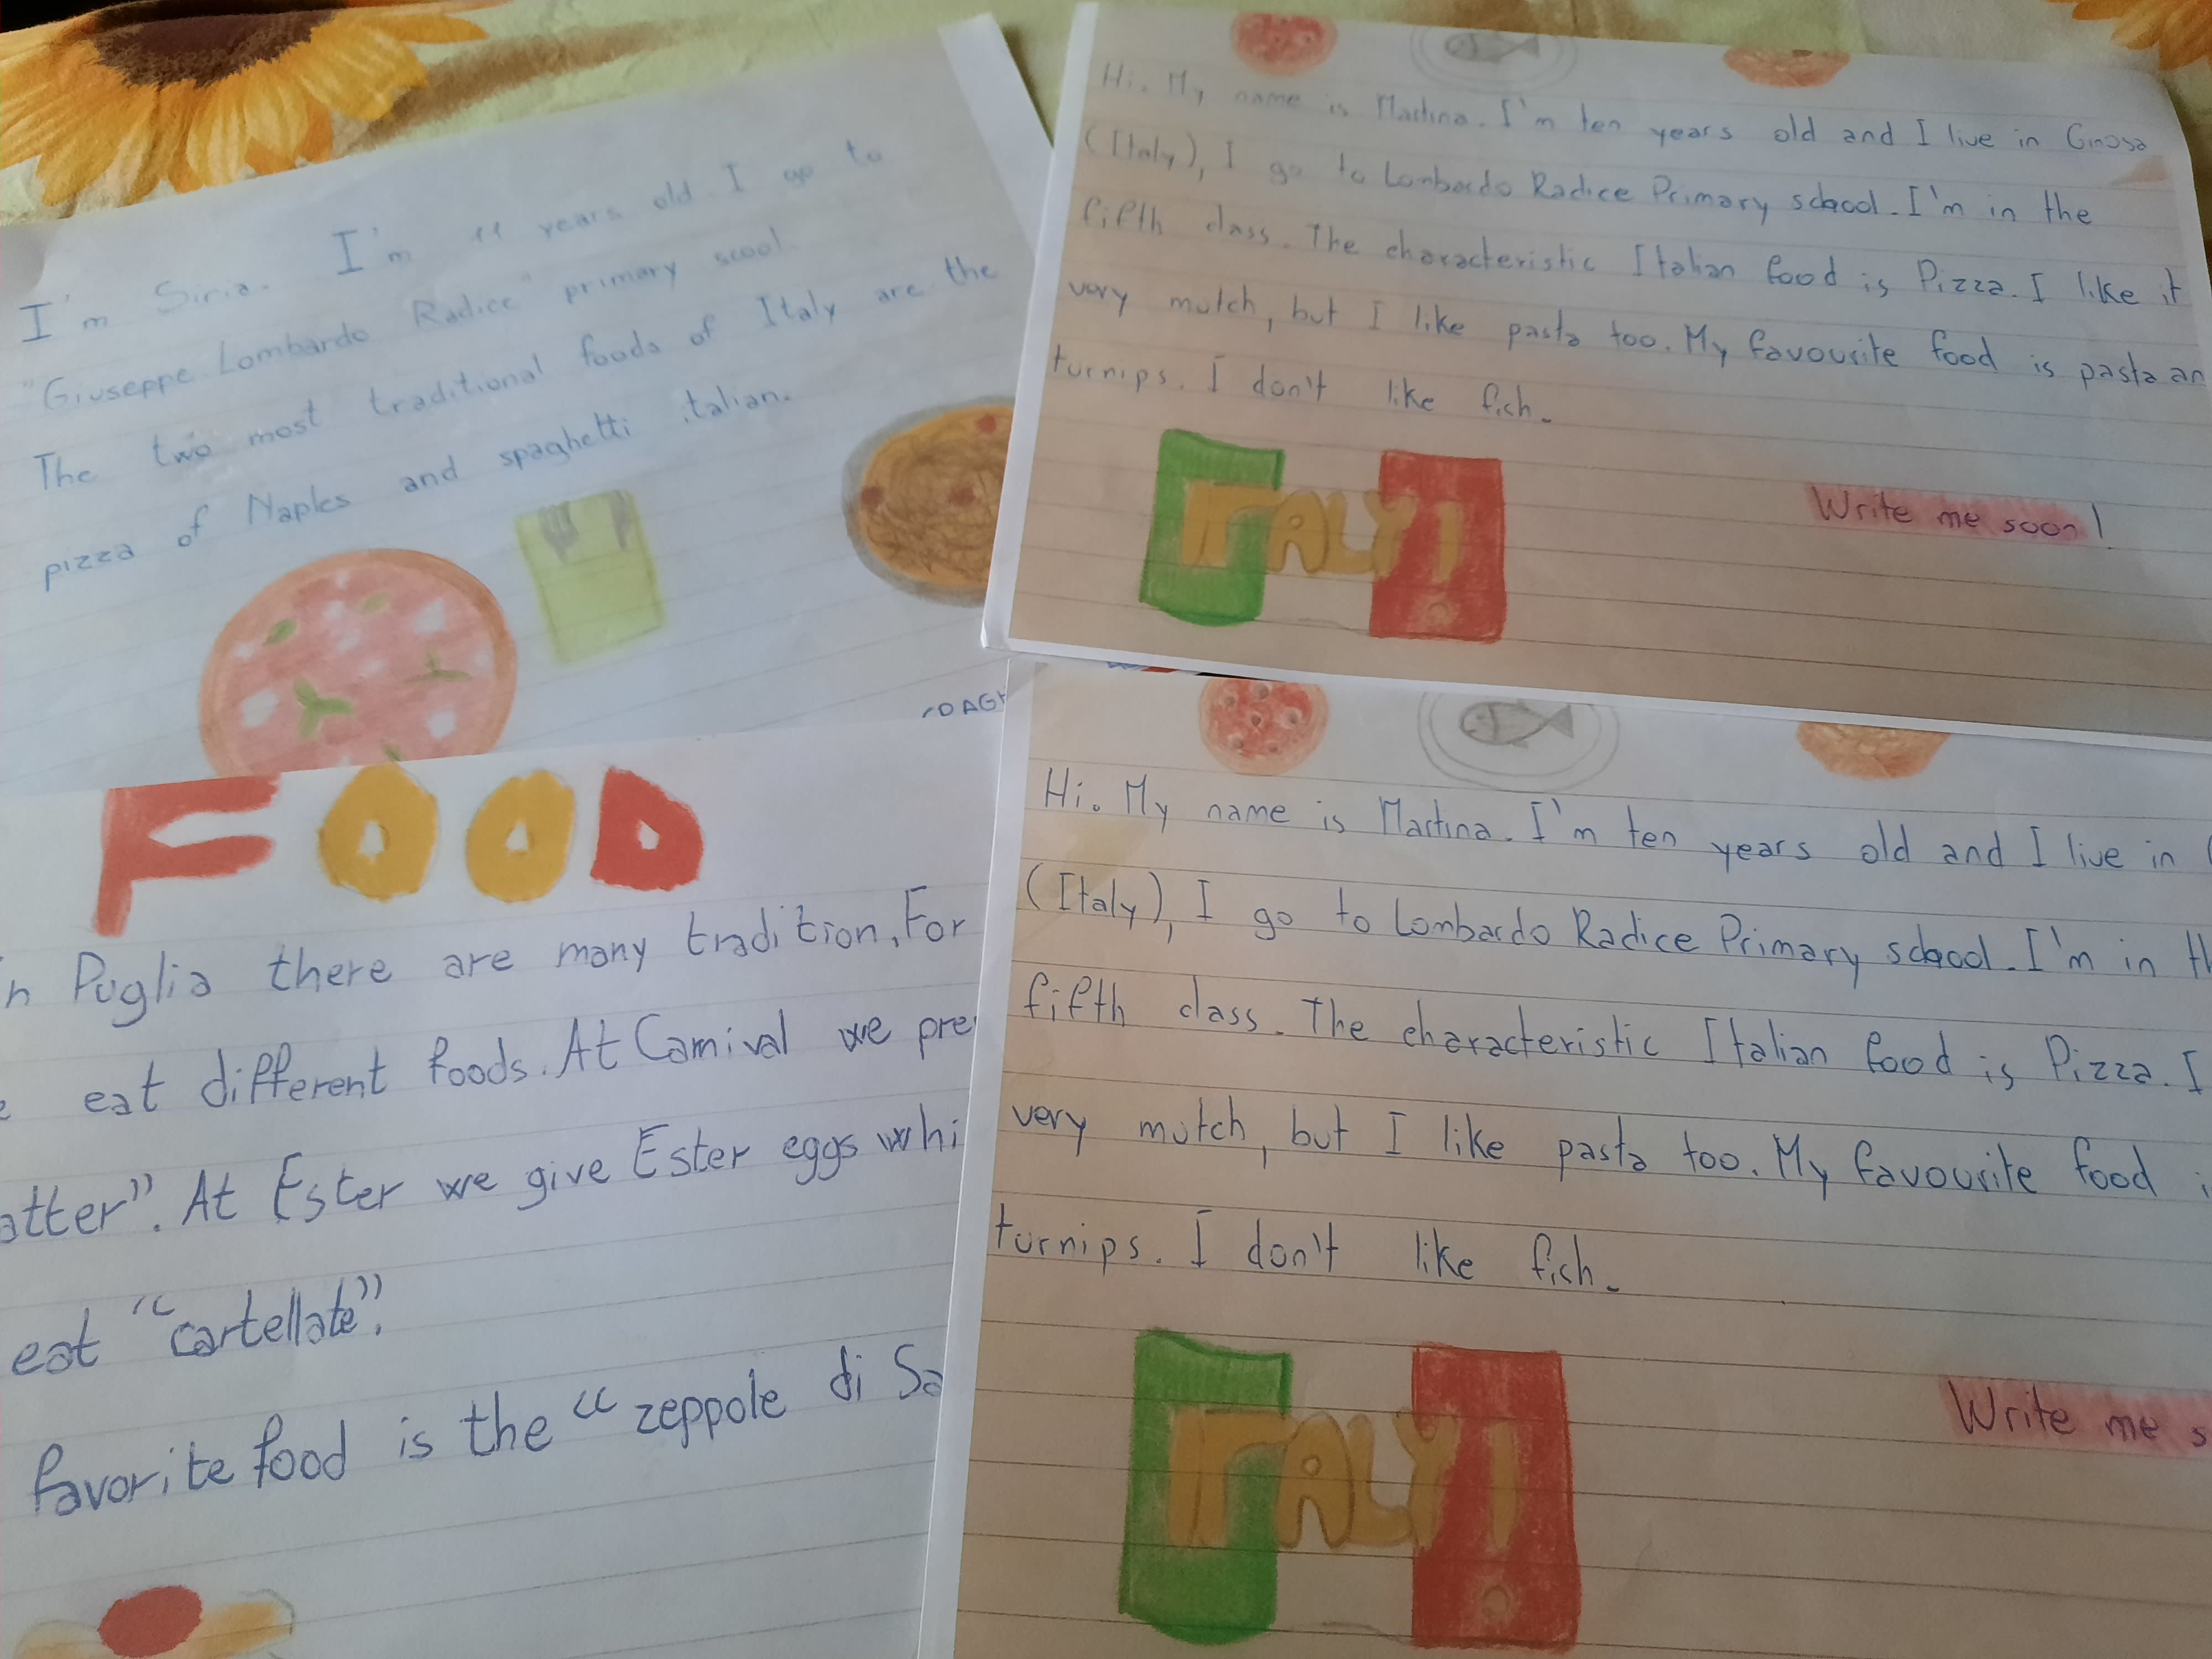 I'm Siria. I'm 11 years old. I go to
"Giuseppe Lombardo Radice" primary scool.
The two most traditional foods of Italy are the
pizza of Naples and spaghetti italian.
Hi. My name is Martina. I'm ten years old and I live in Ginosa
(Italy), I go to Lombardo Radice Primary school. I'm in the
fifth class. The characteristic Italian food is Pizza. I like it
very mutch, but I like pasta too. My favourite food is pasta an
turnips. I don't like fich.
ITALY!
Write me soon!
FOOD
n Puglia there are many tradition, For
eat different foods. At Carnival we pre
atter". At Ester we give Ester eggs whi
eat "cartellate".
favorite food is the "zeppole di Sa
Hi. My name is Martina. I'm ten years old and I live in
(Italy), I go to Lombardo Radice Primary school. I'm in th
fifth class. The characteristic Italian food is Pizza. I
very mutch, but I like pasta too. My favourite food i
turnips. I don't like fich.
ITALY!
Write me s